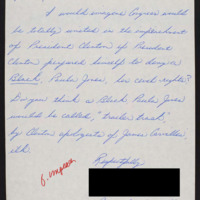 I would imagine Congress would
be totally united in the impeachment
of President Clinton if President
Clinton perjured himself to deny a
Black, Paula Jones, her civil rights?
Do you think a Black Paula Jones
would be called, "trailer trash,"
by Clinton apologists of James Carvelles
ilk.
Respectfully